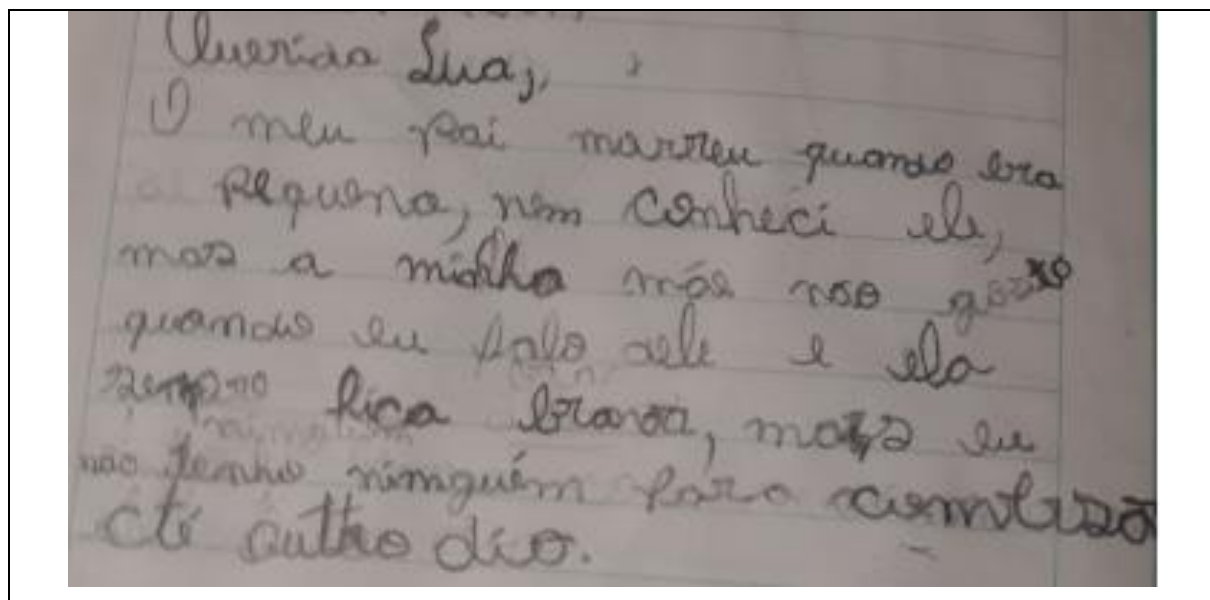 Querida Lua,
O meu pai morreu quando era
pequena, nem conheci ele,
mas a minha mãe não gosta
quando eu falo dele e ela
sempre fica brava, mas eu
não tenho ninguém para
até outro dia.